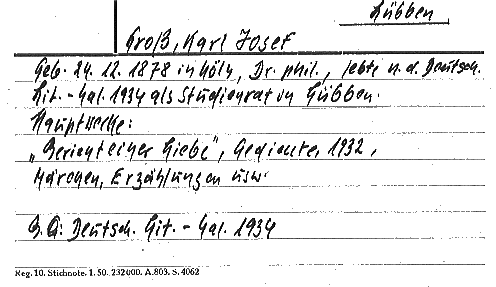 Lübben
Groß, Karl Josef
Geb. 24. 12. 1878 in Köln, Dr. phil., lebte n. d. Deutsch.
Lit. - Kal. 1934 als Studienrat in Lübben.
Hauptwerke:
„Bericht einer Liebe", Gedichte, 1932,
Märchen, Erzählungen usw.
B. A: Deutsch. Lit. - Kal. 1934
Reg. 10. Stichnote. 1. 50. 232000. A.803. S. 4062